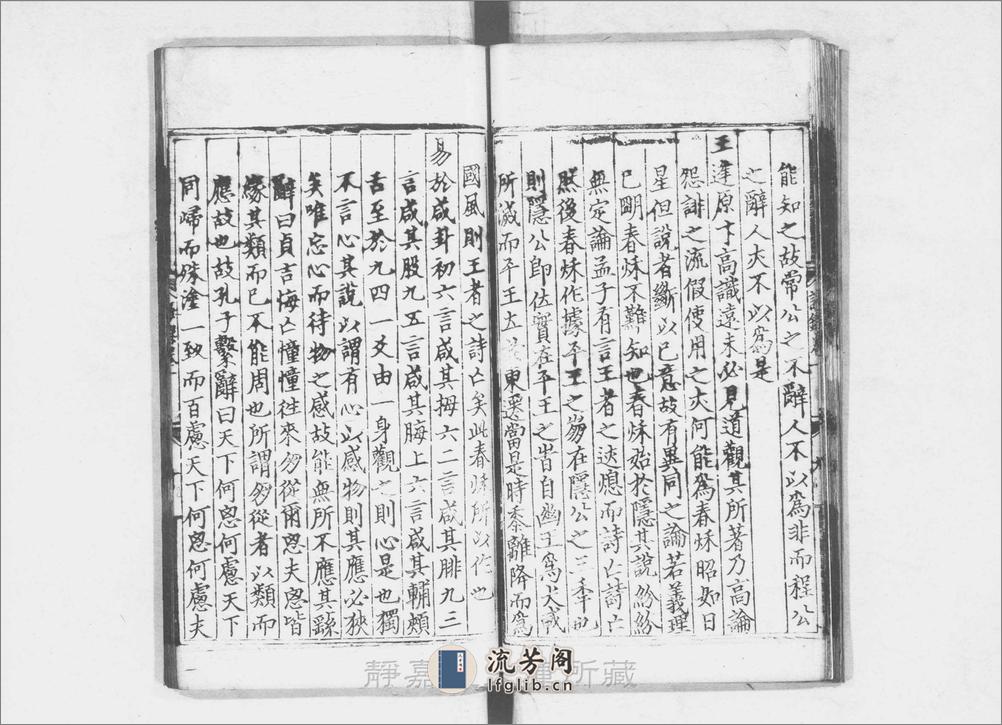 能知之故常公之不辭人不以爲非而程公
之辭人大不以爲是
王逹原卞高識遠未必見道觀其所著乃高論
怨誹之流假使用之夫何能爲春秌昭如日
星但說者斷以己意故有異同之論若義理
已明春秌不難知也春秌始於隱其說紛紛
無定論孟子有言王者之迹熄而詩亡詩亡
然後春秌作據平王之 在隱公之三年也
則隱公即位實在平王之 自幽王爲犬戎
所滅而平王立 東遷當是時黍離降而爲
國風則王者之詩亡矣此春 所以作也
易於咸卦初六言咸其拇六二言咸其腓九三
言咸其股九五言咸其脢上六言咸其輔頰
舌至於九四一爻由一身觀之則心是也獨
不言心其說以謂有心以感物則其應必狹
矣唯忘心而待物之感故能無所不應其繇
辭曰貞吉悔亡憧憧徃來 從爾思夫思皆
縁其類而已不能周也所謂 從者以類而
應故也故孔子繫辭曰天下何思何慮天下
同歸而殊塗一致而百慮天下何思何慮夫
靜嘉 所藏
流芳阁
lfglib.cn